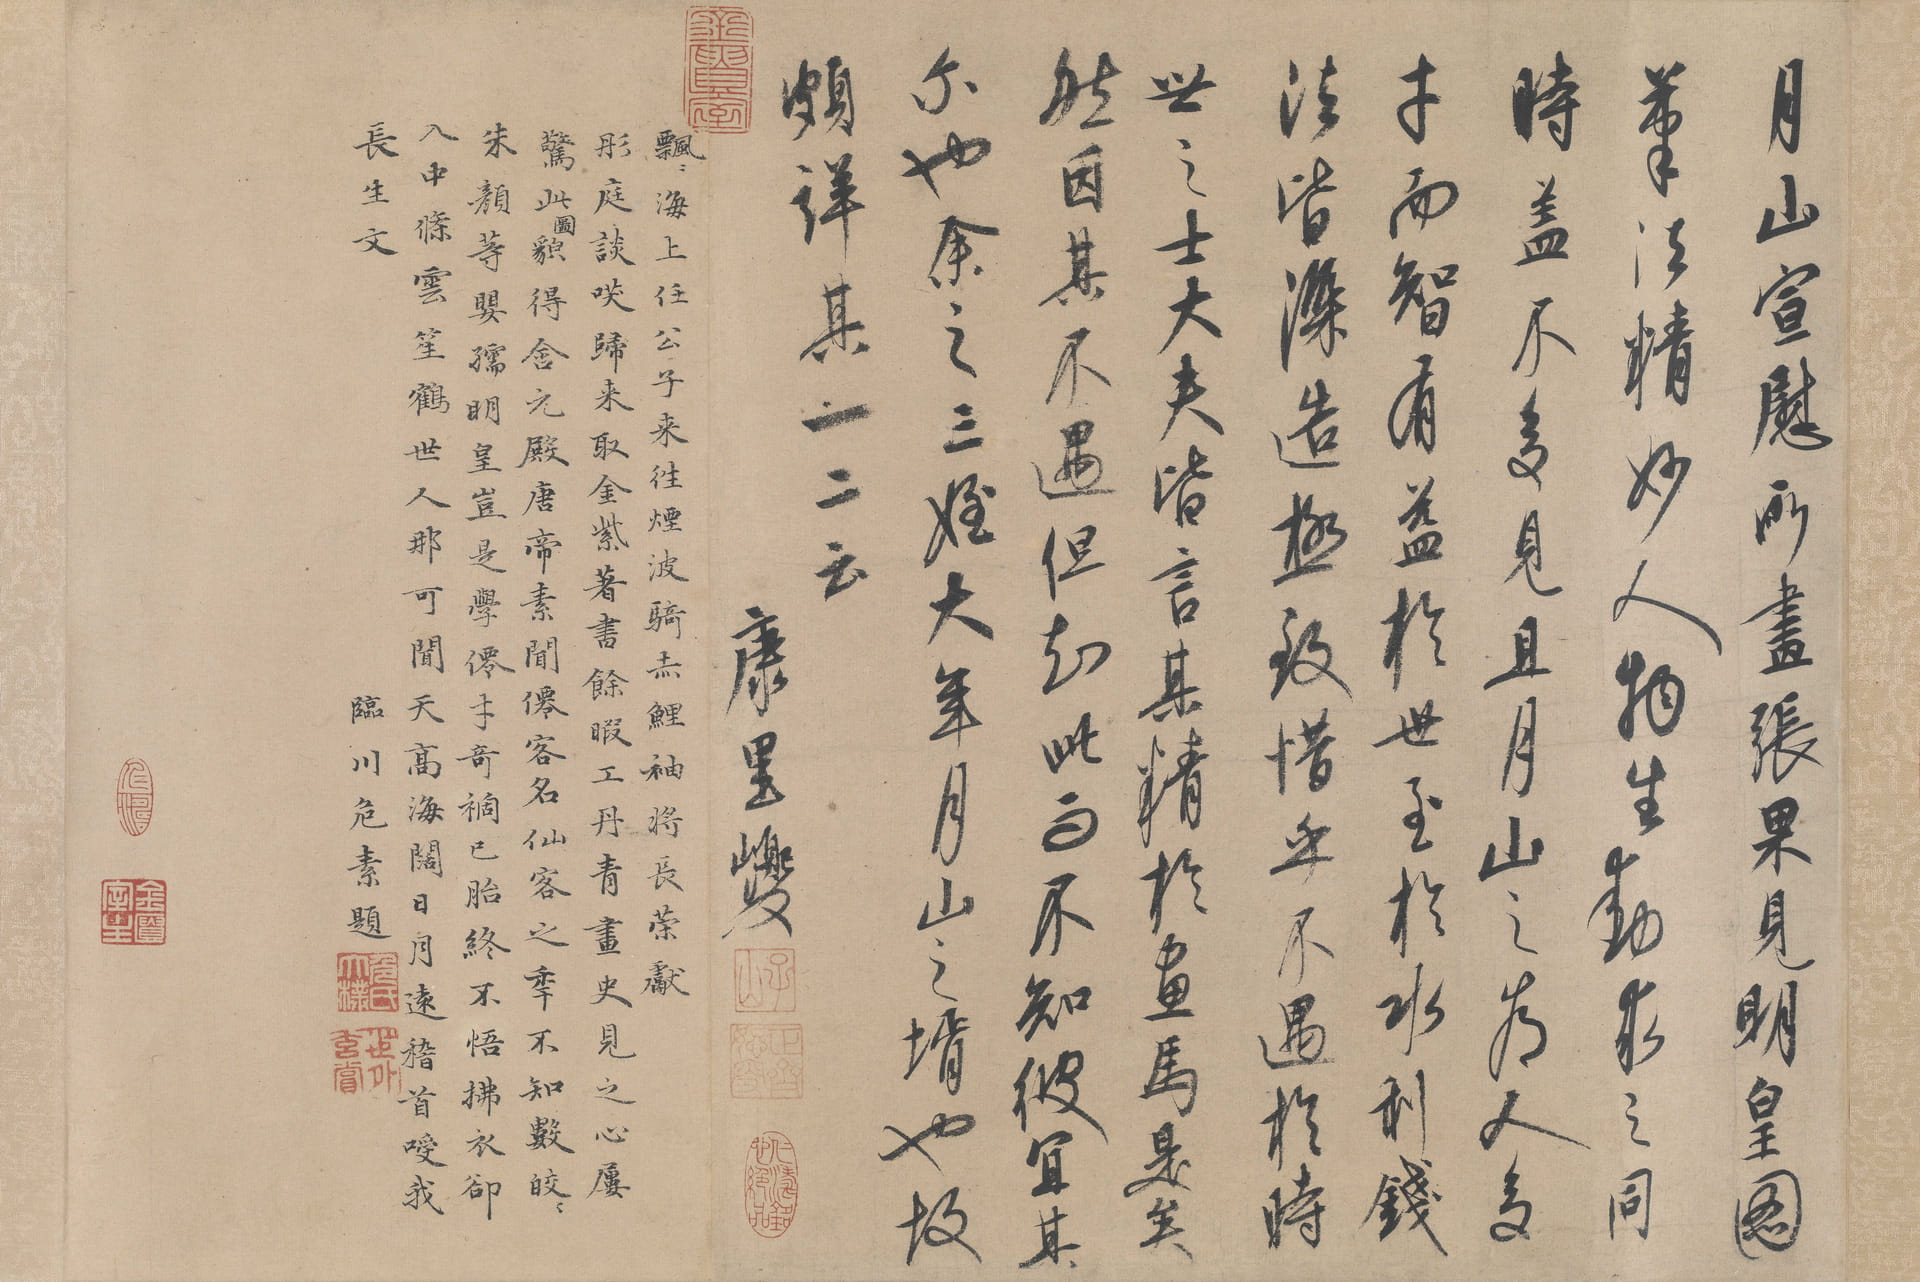 月山宣慰所畫張果見明皇圖
筆法精妙人物生動求之同
時蓋不多見且月山之為人多
才而智有益於世至於水利錢
法皆深造極致惜乎不遇於時
世之士大夫皆言其精於畫馬是矣
然因其不遇但知此而不知彼宜其
尔也余之三姪大年月山之壻也故
頗詳其一二云
康里巎
飄〻海上任公子来往煙波騎赤鯉袖将長荣獻
彤庭談咲歸来取金紫著書餘暇工丹青畫史見之心屢
驚此圖貌得含元殿唐帝素聞僊客名仙客之秊不知數皎〻
朱顔等嬰孺明皇豈是學僊才奇禍已胎終不悟拂衣卻
入中條雲笙鶴世人那可聞天髙海闊日月遠稽首嗳我
長生文
臨川危素題